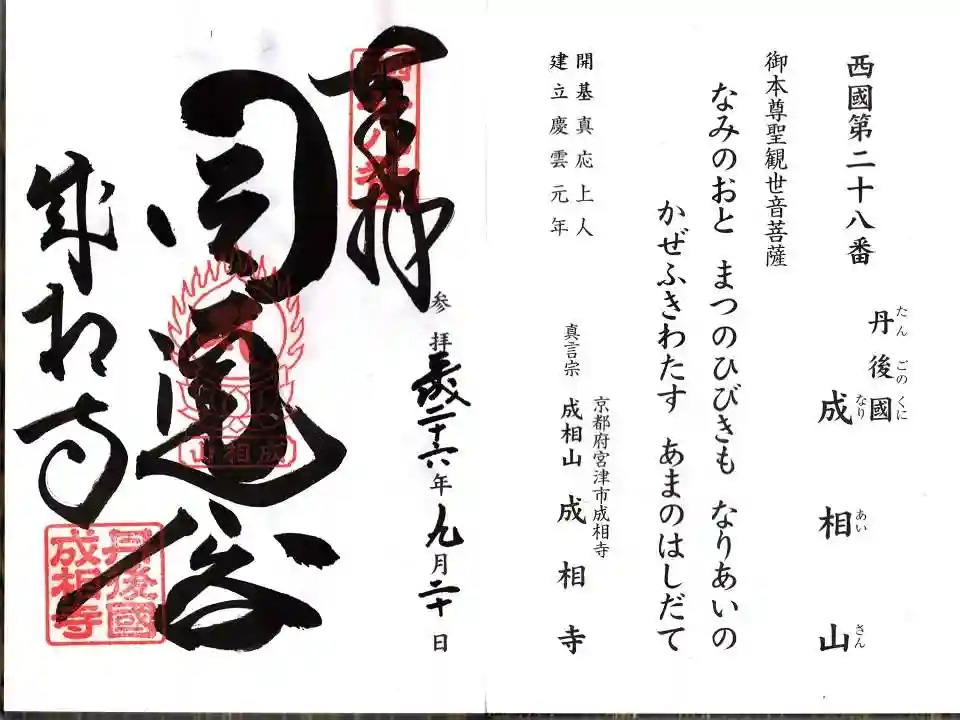 西國第二十八番
丹後國 成相山
たんごのくに なりあいさん
御本尊聖観世音菩薩
なみのおと まつのひびきも なりあいの
かぜふきわたす あまのはしだて
開基真応上人
建立慶雲元年
京都府宮津市成相寺
真言宗 成相山 成相寺
参拝 平成二十六年九月二十日
奉拝
成相寺
成相山
丹後國
成相寺